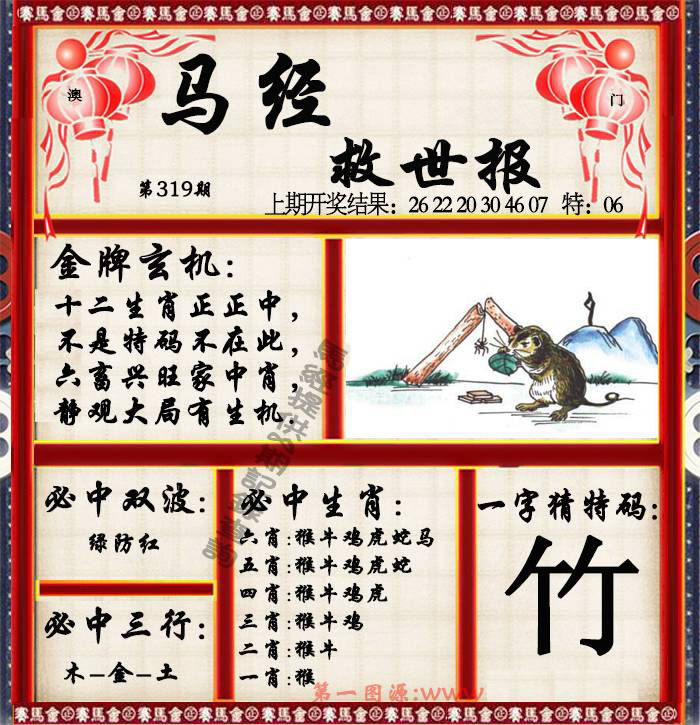 賽馬會正賽馬會正賽馬會正賽馬會正賽馬會正賽馬會
澳
门
马经
救世报
第319期
上期开奖结果：26 22 20 30 46 07 特：06
金牌玄机：
十二生肖正正中，
不是特码不在此，
六畜兴旺家中肖，
静观大局有生机.
必中双波：
绿防红
必中三行：
木–金–土
必中生肖：
六肖:猴牛鸡虎蛇马
五肖:猴牛鸡虎蛇
四肖:猴牛鸡虎
三肖:猴牛鸡
二肖:猴牛
一肖:猴
一字猜特码：
竹
第一图源:www